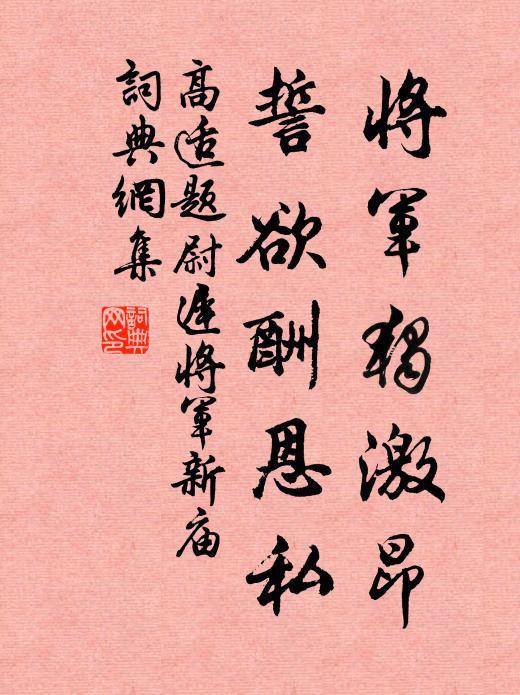 將軍獨激昂
誓欲酬恩私
高适題尉遲將軍新庙
詞典網集
詞典
网印